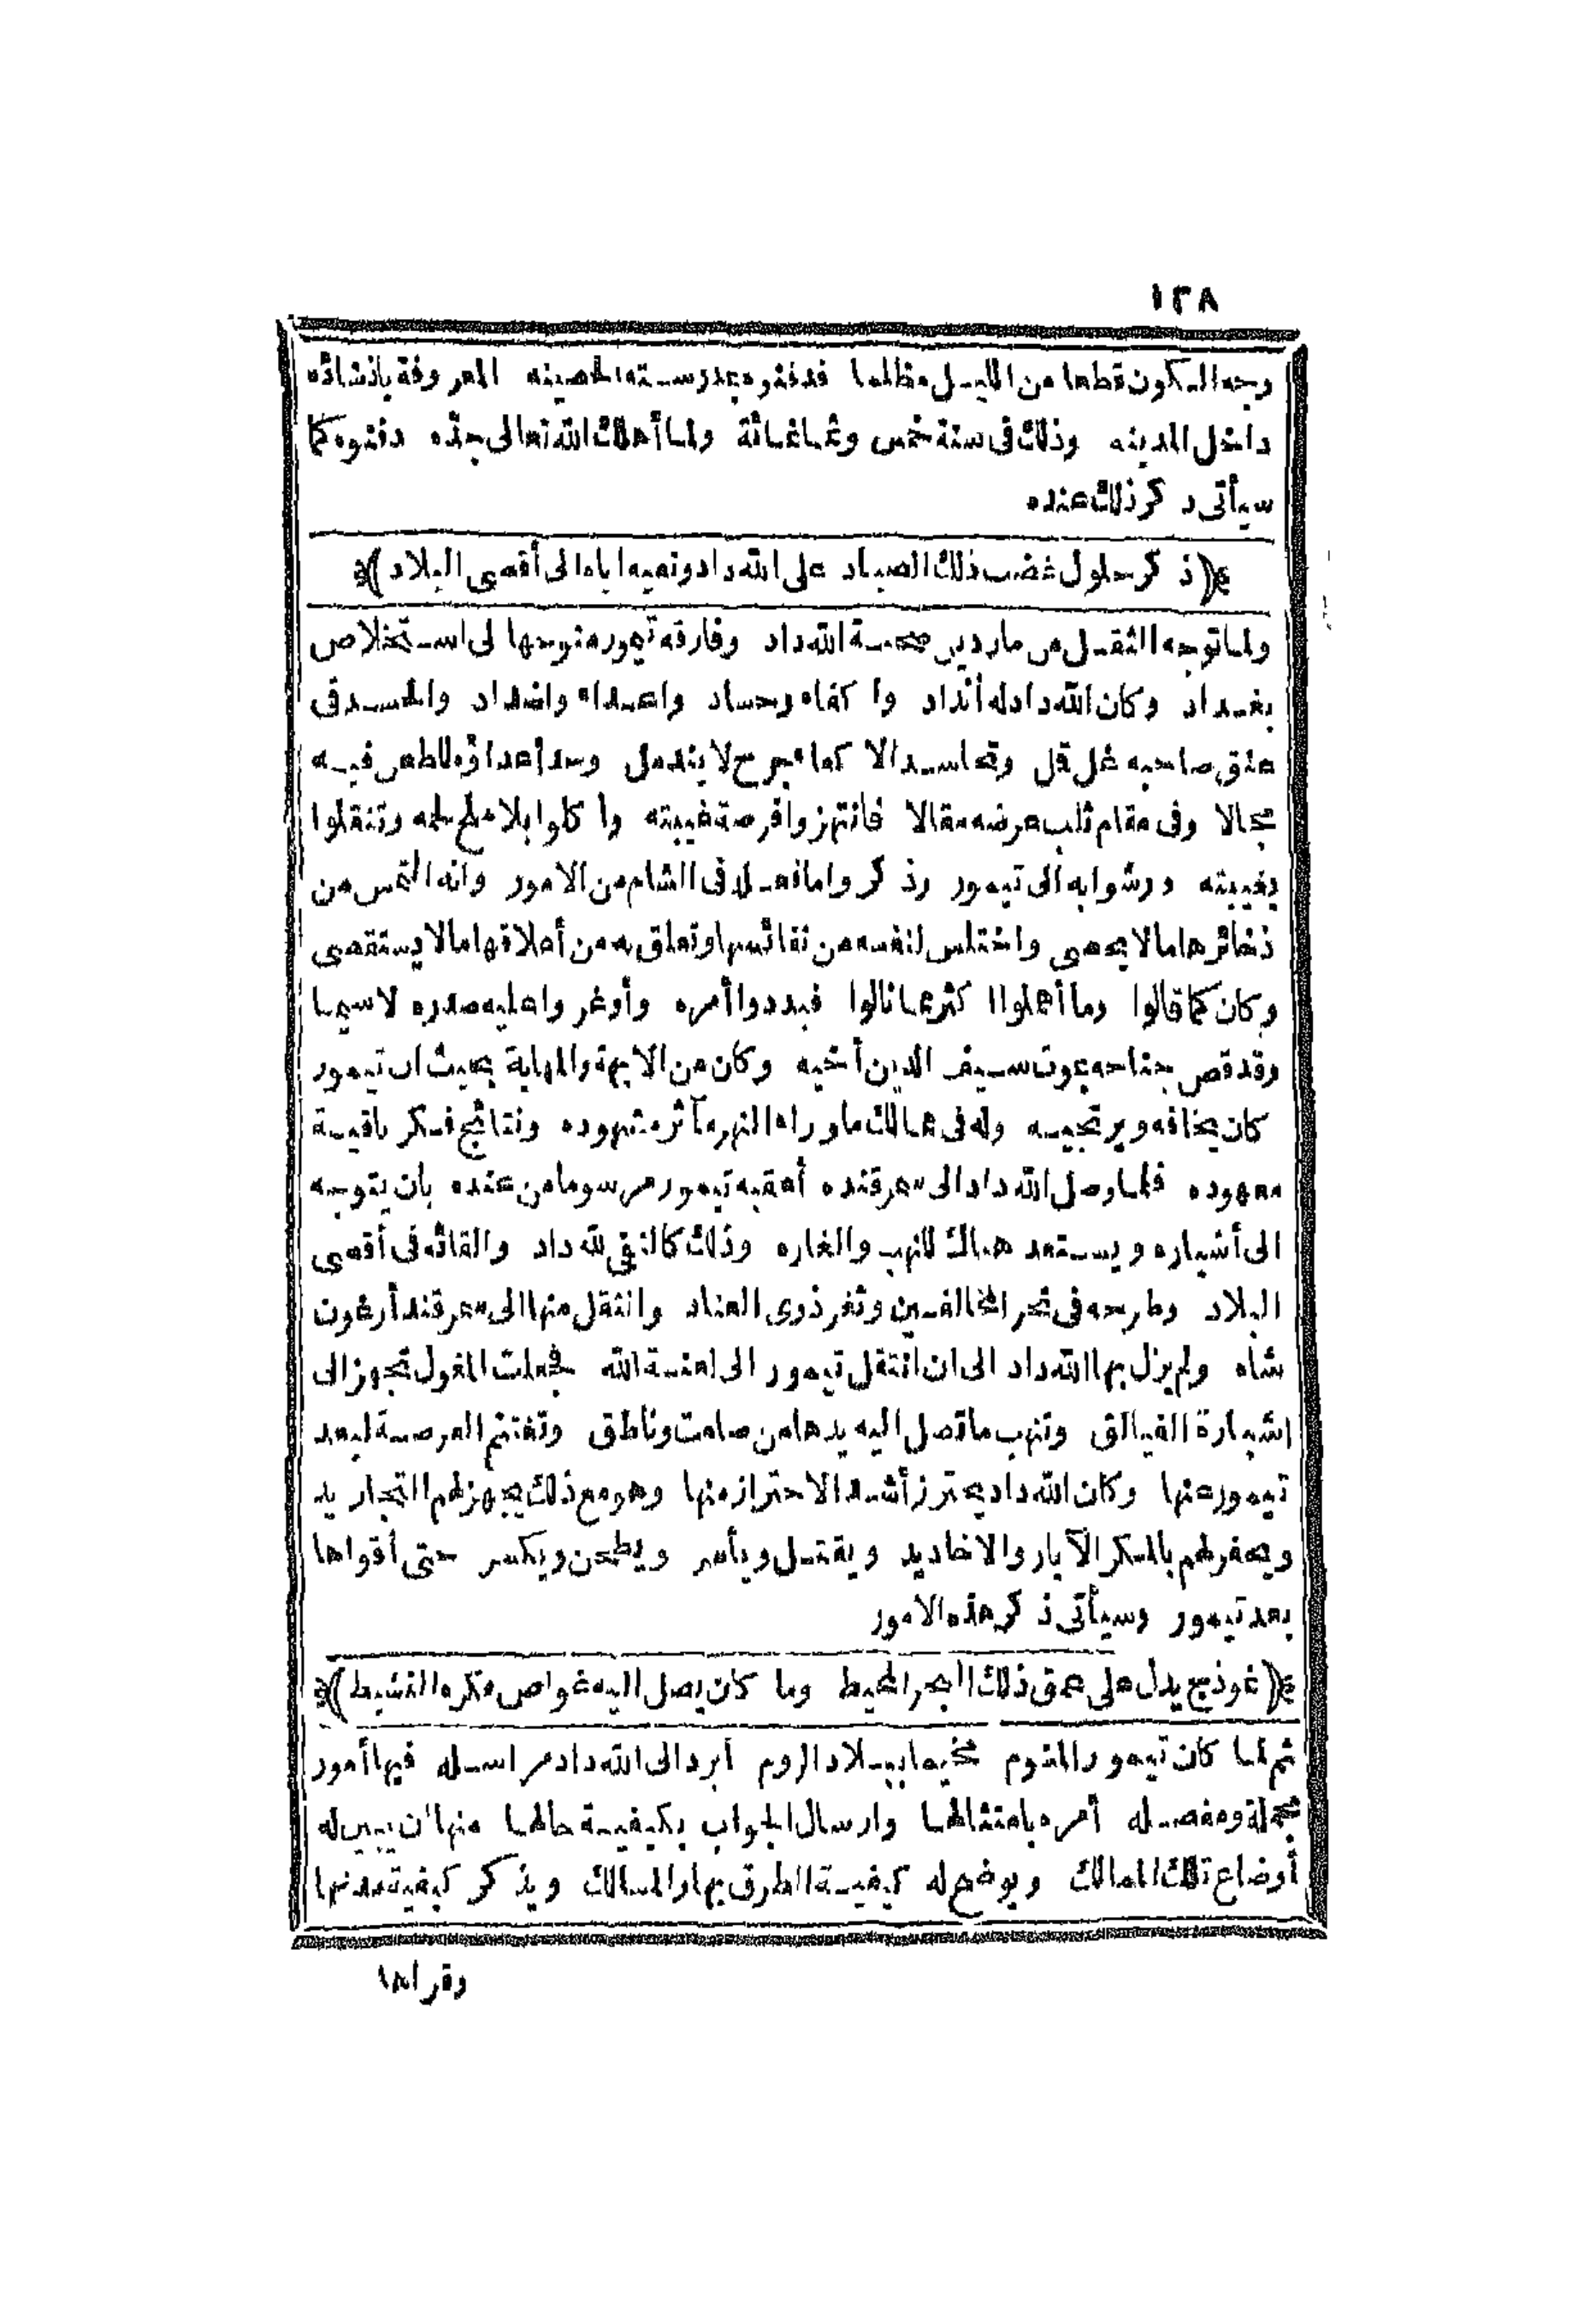 ١٣٨
وجه الكون قطعا من الليل مظلما فدفنوه بمدرسته الحصينه المعروفة بانشائه
داخل المدينه وذلك فى سنة خمس وثمانمائة ولما أهلك الله تعالى جده دفنوه كما
سيأتى ذكر ذلك عنده
﴿(ذكر حلول غضب ذلك الصياد على الله داد ونفيه اياه الى أقصى البلاد)﴾
ولما توجه الثقل من ماردين صحبة الله داد وفارقه تيمور متوجها الى استخلاص
بغداد وكان الله داد له أنداد وأ كفاء وحساد واعداء واضداد والحسد فى
عنق صاحبه غل قل وتحاسد الا كفاء جرح لا يندمل وجد أعداؤه للطعن فيه
مجالا وفى مقام ثلب عرضه مقالا فانتهزوا فرصة غيبته وأ كلوا بلا ملح لحمه وتنقلوا
بغيبته ووشوا به الى تيمور وذكروا ما فعله فى الشام من الامور وانه التمس من
ذخائرها مالا يحصى واختلس لنفسه من نفائسها وتعلق به من أعلاقها مالا يستقصى
وكان كما قالوا وما أهملوا اكثر مما نالوا فبددوا أمره وأوغروا عليه صدره لاسيما
وقد قص جناحه بموت سيف الدين أخيه وكان من الابهة والمهابة بحيث ان تيمور
كان يخافه ويرتجيه وله فى ممالك ماوراء النهر مآثر مشهوده ونتائج فكر باقية
معهوده فلما وصل الله داد الى سمرقنده أعقبه تيمور مرسوما من عنده بان يتوجه
الى أشباره ويستعد هناك للنهب والغاره وذلك كالنفى لله داد والقائه فى أقصى
البلاد وطرحه فى نحر المخالفين وثغر ذوى العناد وانتقل منها الى سمرقند أرغون
شاه ولم يزل بها الله داد الى ان انتقل تيمور الى لعنة الله فجعلت المغول تجوز الى
اشبارة الفيالق وتنهب ما تصل اليه يدها من صامت وناطق وتغتنم الفرصة لبعد
تيمور عنها وكان الله داد يحترز أشد الاحتراز منها وهو مع ذلك يجهز لهم التجاريد
ويحفر لهم بالمكر الآبار والاخاديد ويقتل ويأسر ويطحن ويكسر حتى أقواها
بعد تيمور وسيأتى ذكر هذه الامور
﴿(نموذج يدل على عمق ذلك البحر المحيط وما كان يصل اليه غواص فكره النشيط)﴾
ثم لما كان تيمور المشوم مخيما ببلاد الروم أبرد الى الله داد مراسله فيها أمور
مجملة ومفصله أمره بامتثالها وارسال الجواب بكيفية حالها منها ان يبين له
أوضاع تلك الممالك ويوضح له كيفية الطرق بها والمسالك ويذكر كيفية مدنها
وقراها